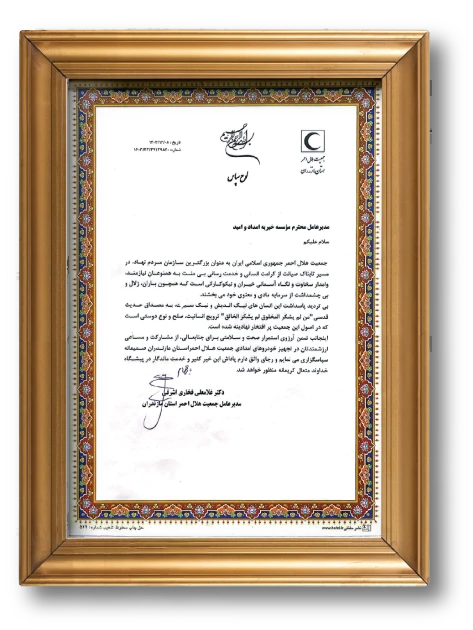 جمعیت هلال احمر
استان مازندران
تاریخ: ۱۴۰۳/۱۲/۰۸
شماره:
لوح سپاس
مدیرعامل محترم مؤسسه خیریه امداد و امید
سلام علیکم
جمعیت هلال احمر جمهوری اسلامی ایران به عنوان بزرگترین سازمان مردم نهاد، در
مسیر تابناک صیانت از کرامت انسانی و خدمت رسانی بی منت به همنوعان نیازمند،
وامدار سخاوت و نگاه آسمانی خیران و نیکوکارانی است که همچون باران، زلال و
بی چشمداشت از سرمایه مادی و معنوی خود می بخشند.
بی تردید پاسداشت این انسان های نیک اندیش و نیک سیرت، به مصداق حدیث
قدسی "من لم یشکر المخلوق لم یشکر الخالق" ترویج انسانیت، صلح و نوع دوستی است
که در اصول این جمعیت پر افتخار نهادینه شده است.
اینجانب ضمن آرزوی استمرار صحت و سلامتی برای جنابعالی، از مشارکت و مساعی
ارزشمندتان در تجهیز خودروهای امدادی جمعیت هلال احمراستان مازندران صمیمانه
سپاسگزاری می نمایم و رجای واثق دارم پاداش این خیر کثیر و خدمت ماندگار در پیشگاه
خداوند متعال کریمانه منظور خواهد شد.
دکتر غلامعلی فخاری اشرفی
مدیرعامل جمعیت هلال احمر استان مازندران
حق چاپ محفوظ